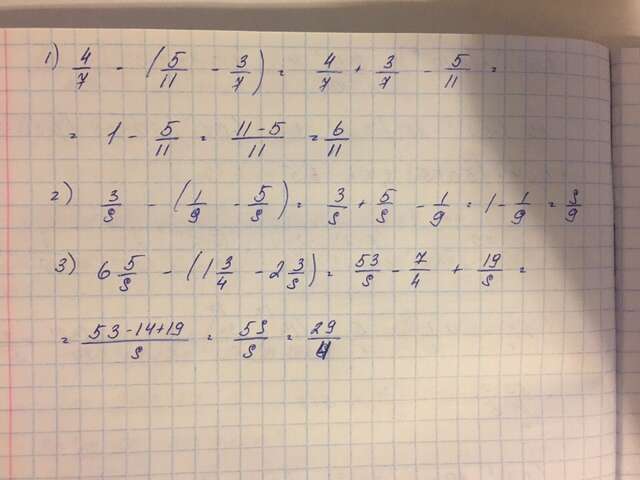 1) 4/7 - (5/11 - 3/7) = 4/7 + 3/7 - 5/11 =
= 1 - 5/11 = 11-5/11 = 6/11
2) 3/8 - (1/9 - 5/8) = 3/8 + 5/8 - 1/9 = 1 - 1/9 = 8/9
3) 6 5/8 - (1 3/4 - 2 3/8) = 53/8 - 7/4 + 19/8 =
= 53-14+19/8 = 58/8 = 29/4